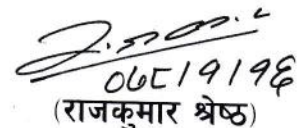 ०७८।१।१६
(राजकुमार श्रेष्ठ)